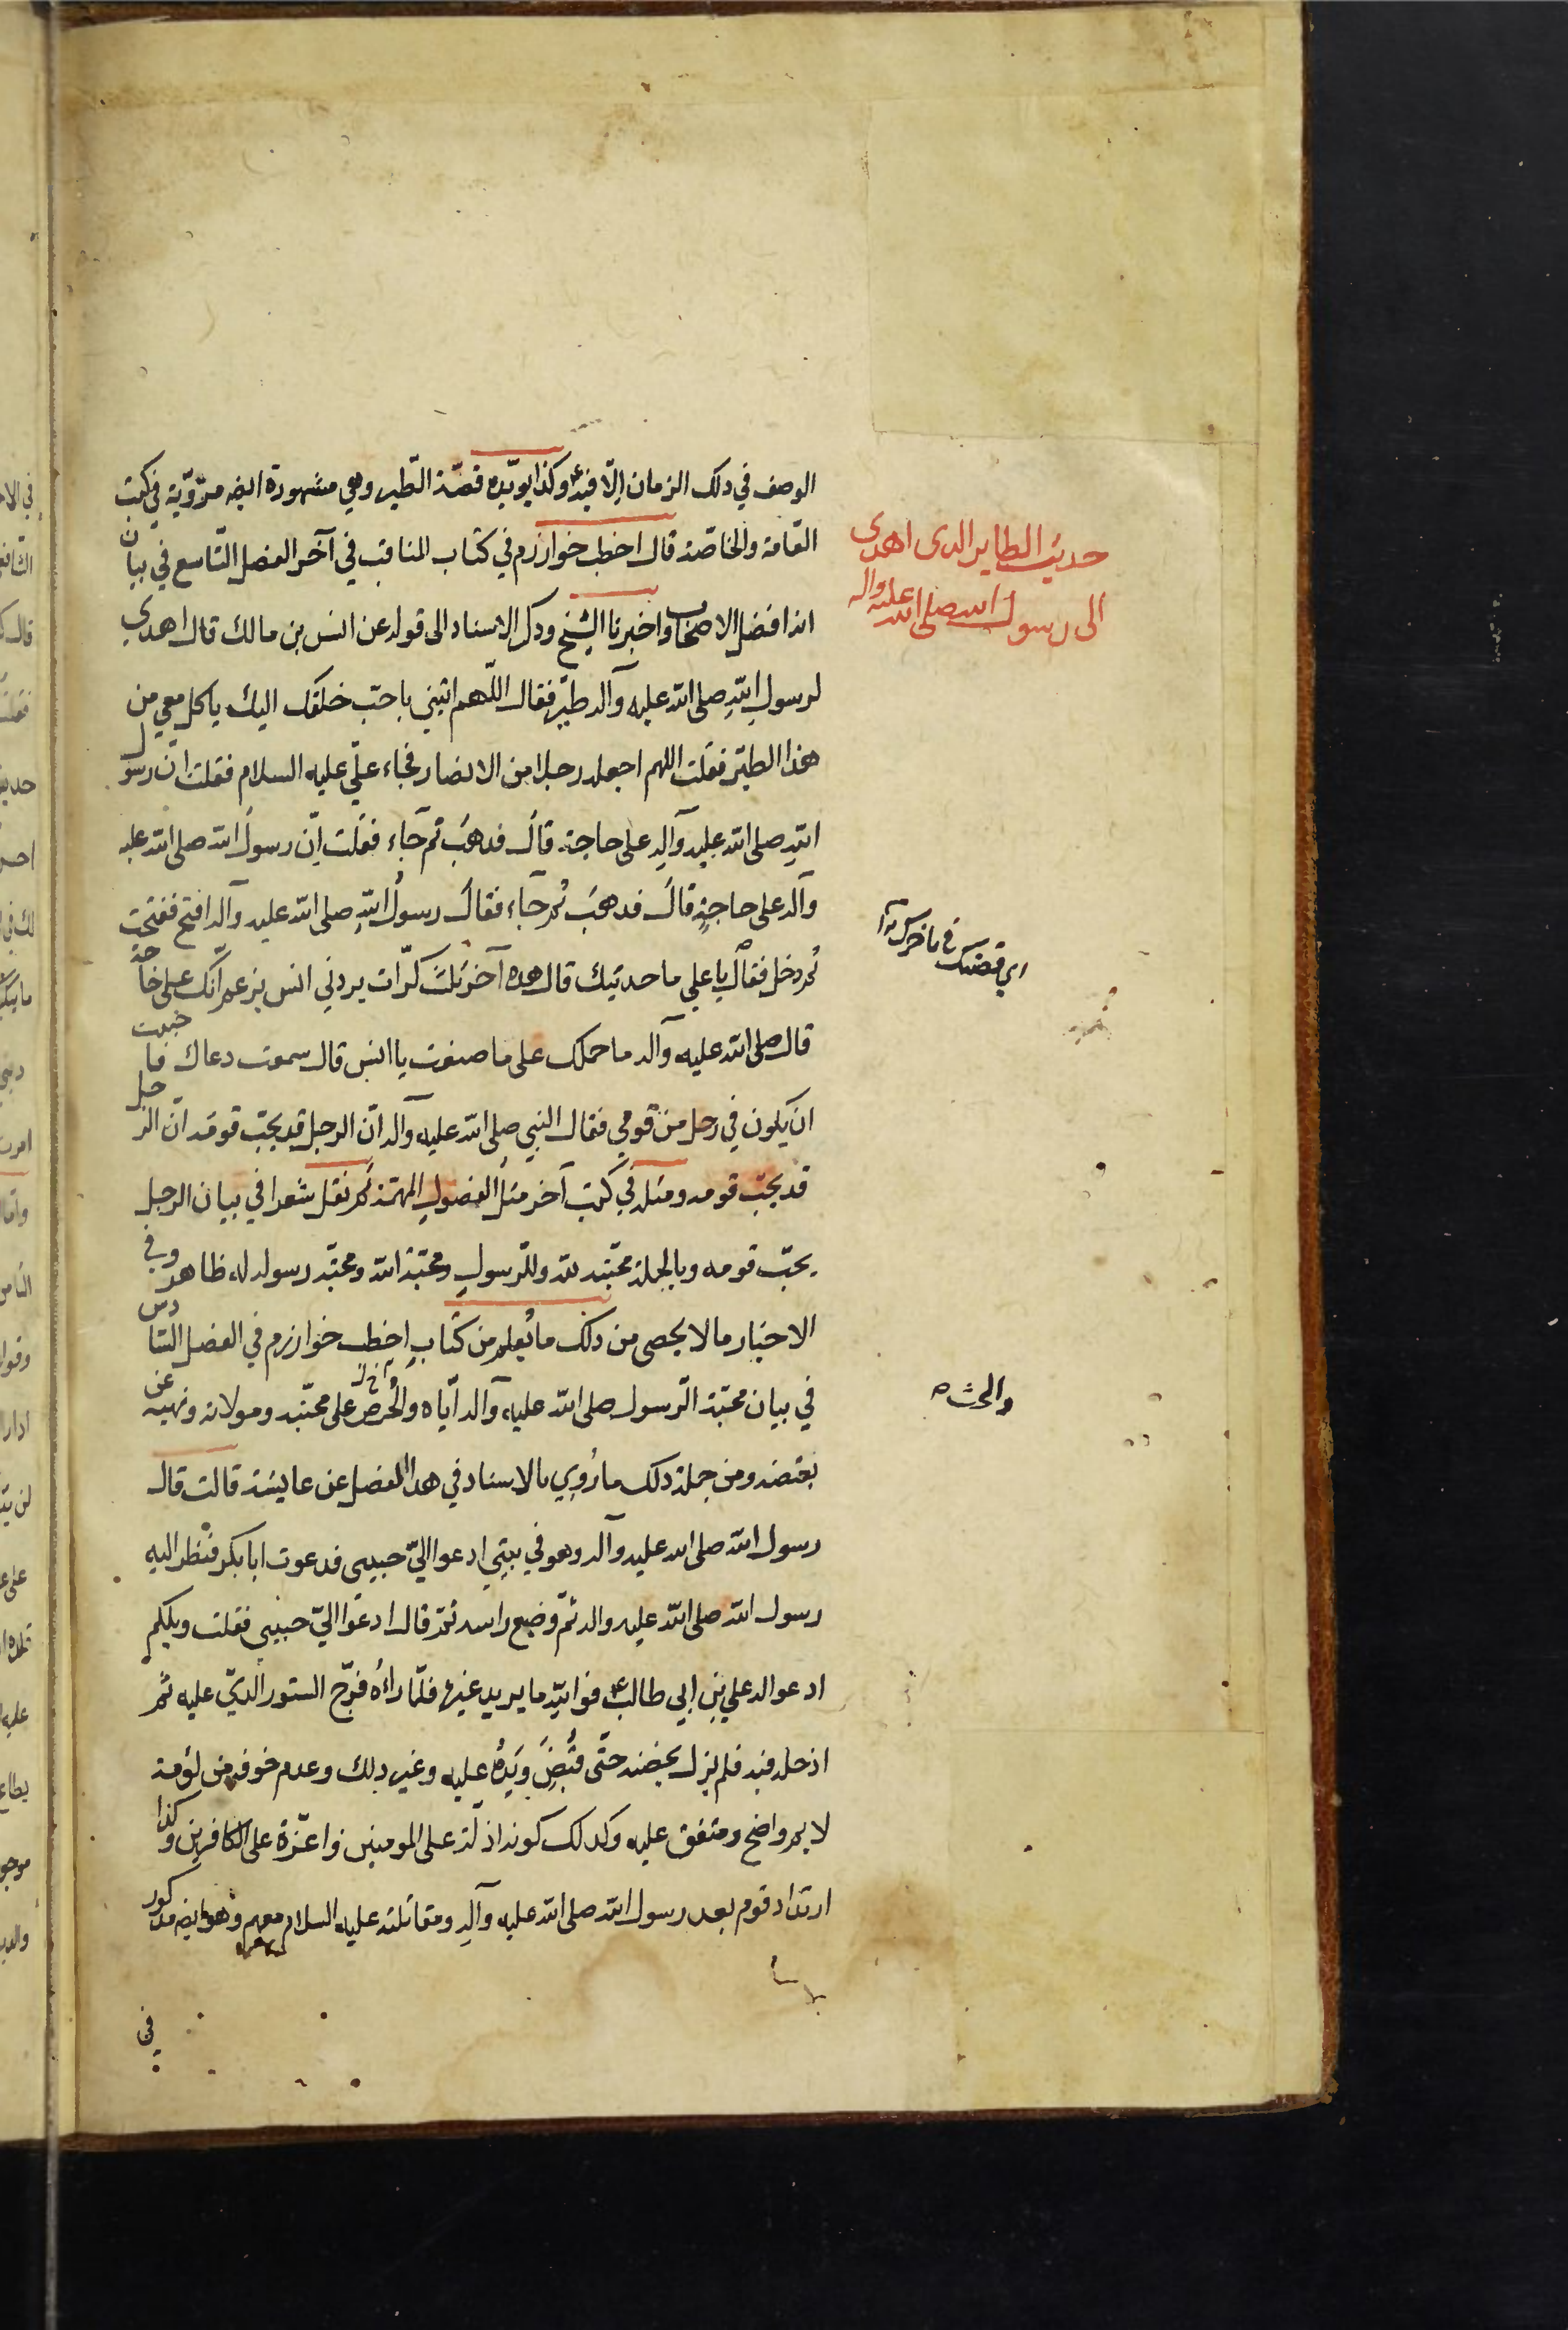 الوصف في ذلك الزمان الّا فيه ع وكذا يويّده قصّة الطّير وهي مشهورة ايضه مرويّة في كتب
العّامة والخاصّة قال اخطب خوارزم في كتاب المناقب في آخر الفصل التّاسع في بيان
انه افضل الاصحاب واخبرنا الشيخ وذكر الاسناد الى قوله عن انس بن مالك قال اهدي
لرسول اللهِ صلى الله عليه وآله طيرٌ فقال اللّهم ائتني باحبّ خلقك اليك ياكل معي من
هذا الطّير فقلت اللهم اجعله رجلا من الانصار فجاء عليّ عليه السلام فقلت انّ رسول
اللهِ صلى الله عليه وآلِه على حاجة قالَ فذهبَ ثم جَاء فقلت انّ رسولَ الله صلى الله عليه
وآله على حاجةٍ قالَ فذهبَ ثم جَاء فقالَ رسولُ اللهِ صلى الله عليه وآله افتح ففتحت
ثم دخل فقالَ يا علي ما حديثك قال هذه آخر ثلث كرّات يردني انس يزعم انّك على حاجة
قال صلى الله عليه وآله ما حملك على ما صنعت يا انس قال سمعت دعاك فاحببت
ان يكون في رجل من قومي فقال النبي صلى الله عليه وآله انّ الرجل قد يحبّ قومَه انّ الرجل
قد يحبّ قومه ومثله في كتب آخر مثل الفصولِ المهمّة ثم نقل شعرا في بيان الرجل
يحبّ قومه وبالجملة محبّته لله وللرّسولِ ومحبّة الله ومحبّة رسوله له ظاهر وفي
الاخبار ما لا يحصى من ذلك ما يُعلم من كتابِ اخطب خوارزم في الفصل السّادس
في بيان محبّة الرّسول صلى الله عليه وآله ايّاه والحُرص على محبّته ومولاته ونهيه عن
بغضه ومن جملة ذلك ما رُوِي بالاسناد في هذا الفصل عن عايشة قالت قال
رسول الله صلى الله عليه وآله وهو في بيتي ادعوا اليّ حبيبي فدعوت ابا بكر فنظر اليه
رسول الله صلى الله عليه واله ثمّ وضع راسه ثمّ قال ادعوا اليّ حبيبي فقلت ويلكم
ادعوا له علي بن ابي طالب ع فو اللهِ ما يريد غيره فلمّا راءهُ فرّج الستور الذّي عليه ثم
ادخله فيه فلم يزل يحضنه حتّى قُبِضَ ويَدُهُ عليه وغير ذلك وعدم خوفه من لؤمة
لايم واضح ومتفق عليه وكذلك كونه اذلّة على المومنين واعزّة على الكافرين وكذا
ارتداد قوم بعد رسول الله صلى الله عليه وآلِه ومقاتلته عليه السلام معهم وهو ايضه مذكور
في
حديث الطاير الذى اهدى
الى رسول الله صلى الله عليه واله
والحث